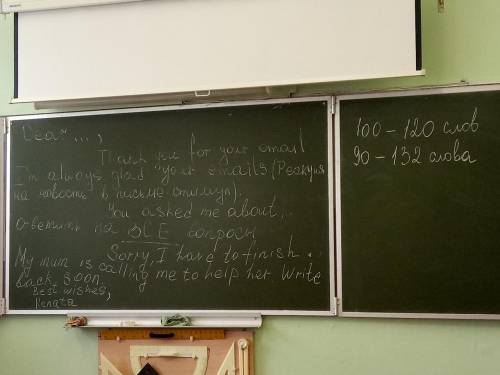 Dear ...,
Thank you for your email
I'm always glad your emails (Реакция
на новость в письме-стимуле).
You asked me about...
Ответить на ВСЕ вопросы
Sorry, I have to finish..
My mum is calling me to help her Write
back soon.
Best wishes,
Renata
100 - 120 слов
90 - 132 слова